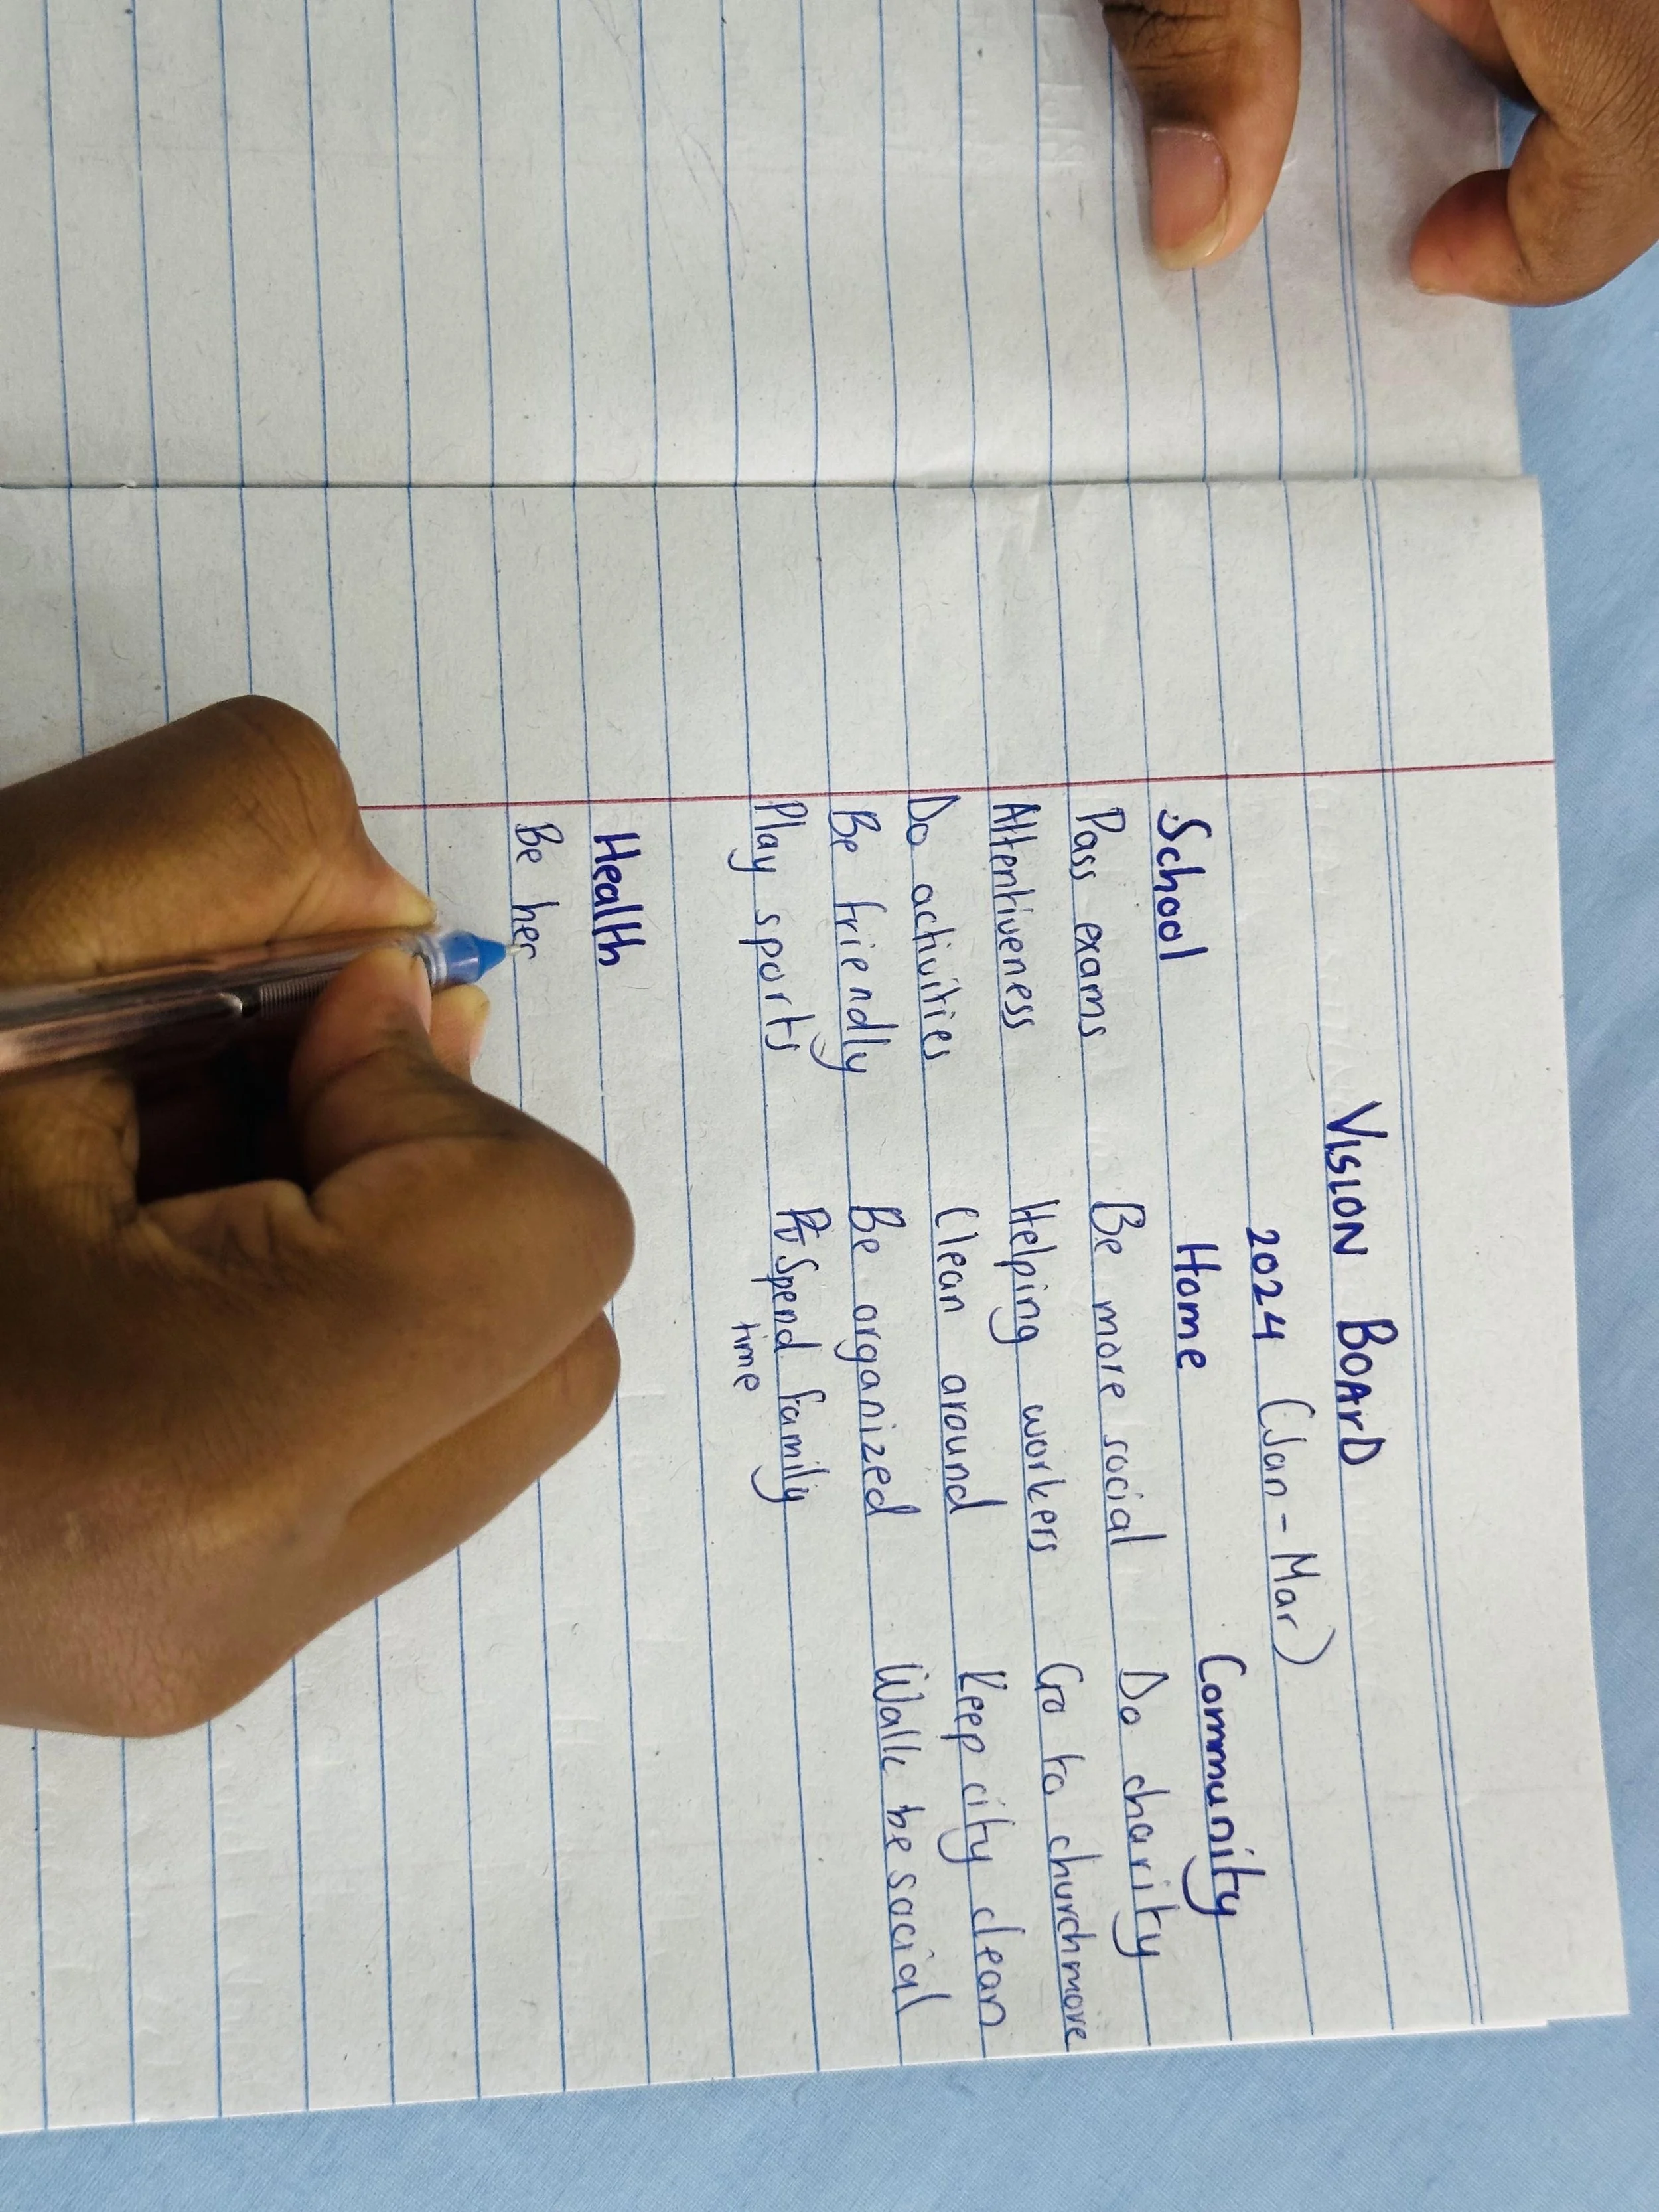 VISION BOARD
2024 (Jan - Mar)
School Home Community
Pass exams Be more social Do charity
Attentiveness Helping workers Go to church more
Do activities Clean around Keep city clean
Be friendly Be organized Walk be social
Play sports Spend family
time
Health
Be her